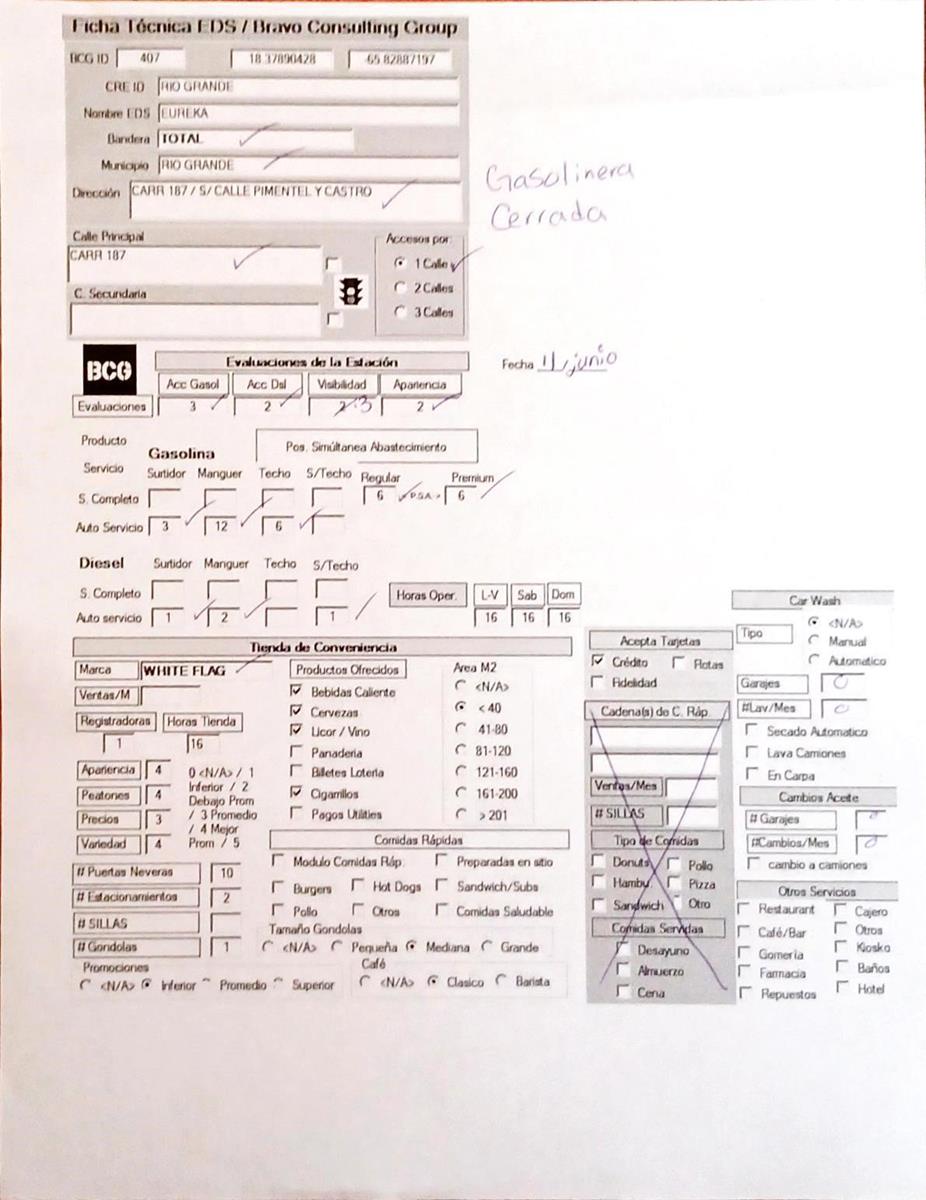 Ficha Técnica EDS / Bravo Consulting Group
BCG ID 407 18.37890428 -65.82887197
CRE ID RIO GRANDE
Nombre EDS EUREKA
Bandera TOTAL
Municipio RIO GRANDE
Dirección CARR 187 / S/ CALLE PIMENTEL Y CASTRO
Gasolinera
Cerrada
Calle Principal
CARR 187
C. Secundaria
Accesos por:
1 Calle
2 Calles
3 Calles
BCG
Evaluaciones de la Estación
Fecha 11 junio
Acc Gasol Acc Dsl Visibilidad Apariencia
Evaluaciones 3 2 3 2
Producto
Gasolina
Pos. Simúltanea Abastecimiento
Servicio Surtidor Manguer Techo S/Techo Regular Premium
S. Completo 6 6
Auto Servicio 3 12 6
Diesel Surtidor Manguer Techo S/Techo
S. Completo
Auto servicio 1 2 1
Horas Oper. L-V Sab Dom
16 16 16
Tienda de Conveniencia
Marca WHITE FLAG
Ventas/M
Registradoras Horas Tienda
1 16
Apariencia 4
Peatones 4
Precios 3
Variedad 4
0 <N/A> / 1
Inferior / 2
Debajo Prom
/ 3 Promedio
/ 4 Mejor
Prom / 5
# Puertas Neveras 10
# Estacionamientos 2
# SILLAS
# Gondolas 1
Promociones
<N/A> Inferior Promedio Superior
Productos Ofrecidos
Bebidas Caliente
Cervezas
Licor / Vino
Panaderia
Billetes Loteria
Cigarrillos
Pagos Utilities
Area M2
<N/A>
< 40
41-80
81-120
121-160
161-200
> 201
Comidas Rápidas
Modulo Comidas Ráp. Preparadas en sitio
Burgers Hot Dogs Sandwich/Subs
Pollo Otros Comidas Saludable
Tamaño Gondolas
<N/A> Pequeña Mediana Grande
Café
<N/A> Clasico Barista
Acepta Tarjetas
Crédito Flotas
Fidelidad
Cadena(s) de C. Ráp.
Ventas/Mes
# SILLAS
Tipo de Comidas
Donuts Pollo
Hambu. Pizza
Sandwich Otro
Comidas Servidas
Desayuno
Almuerzo
Cena
Car Wash
Tipo
<N/A>
Manual
Automatico
Garajes 0
#Lav/Mes 0
Secado Automatico
Lava Camiones
En Carpa
Cambios Aceite
# Garajes 0
#Cambios/Mes 0
cambio a camiones
Otros Servicios
Restaurant Cajero
Café/Bar Otros
Gomeria Kiosko
Farmacia Baños
Repuestos Hotel